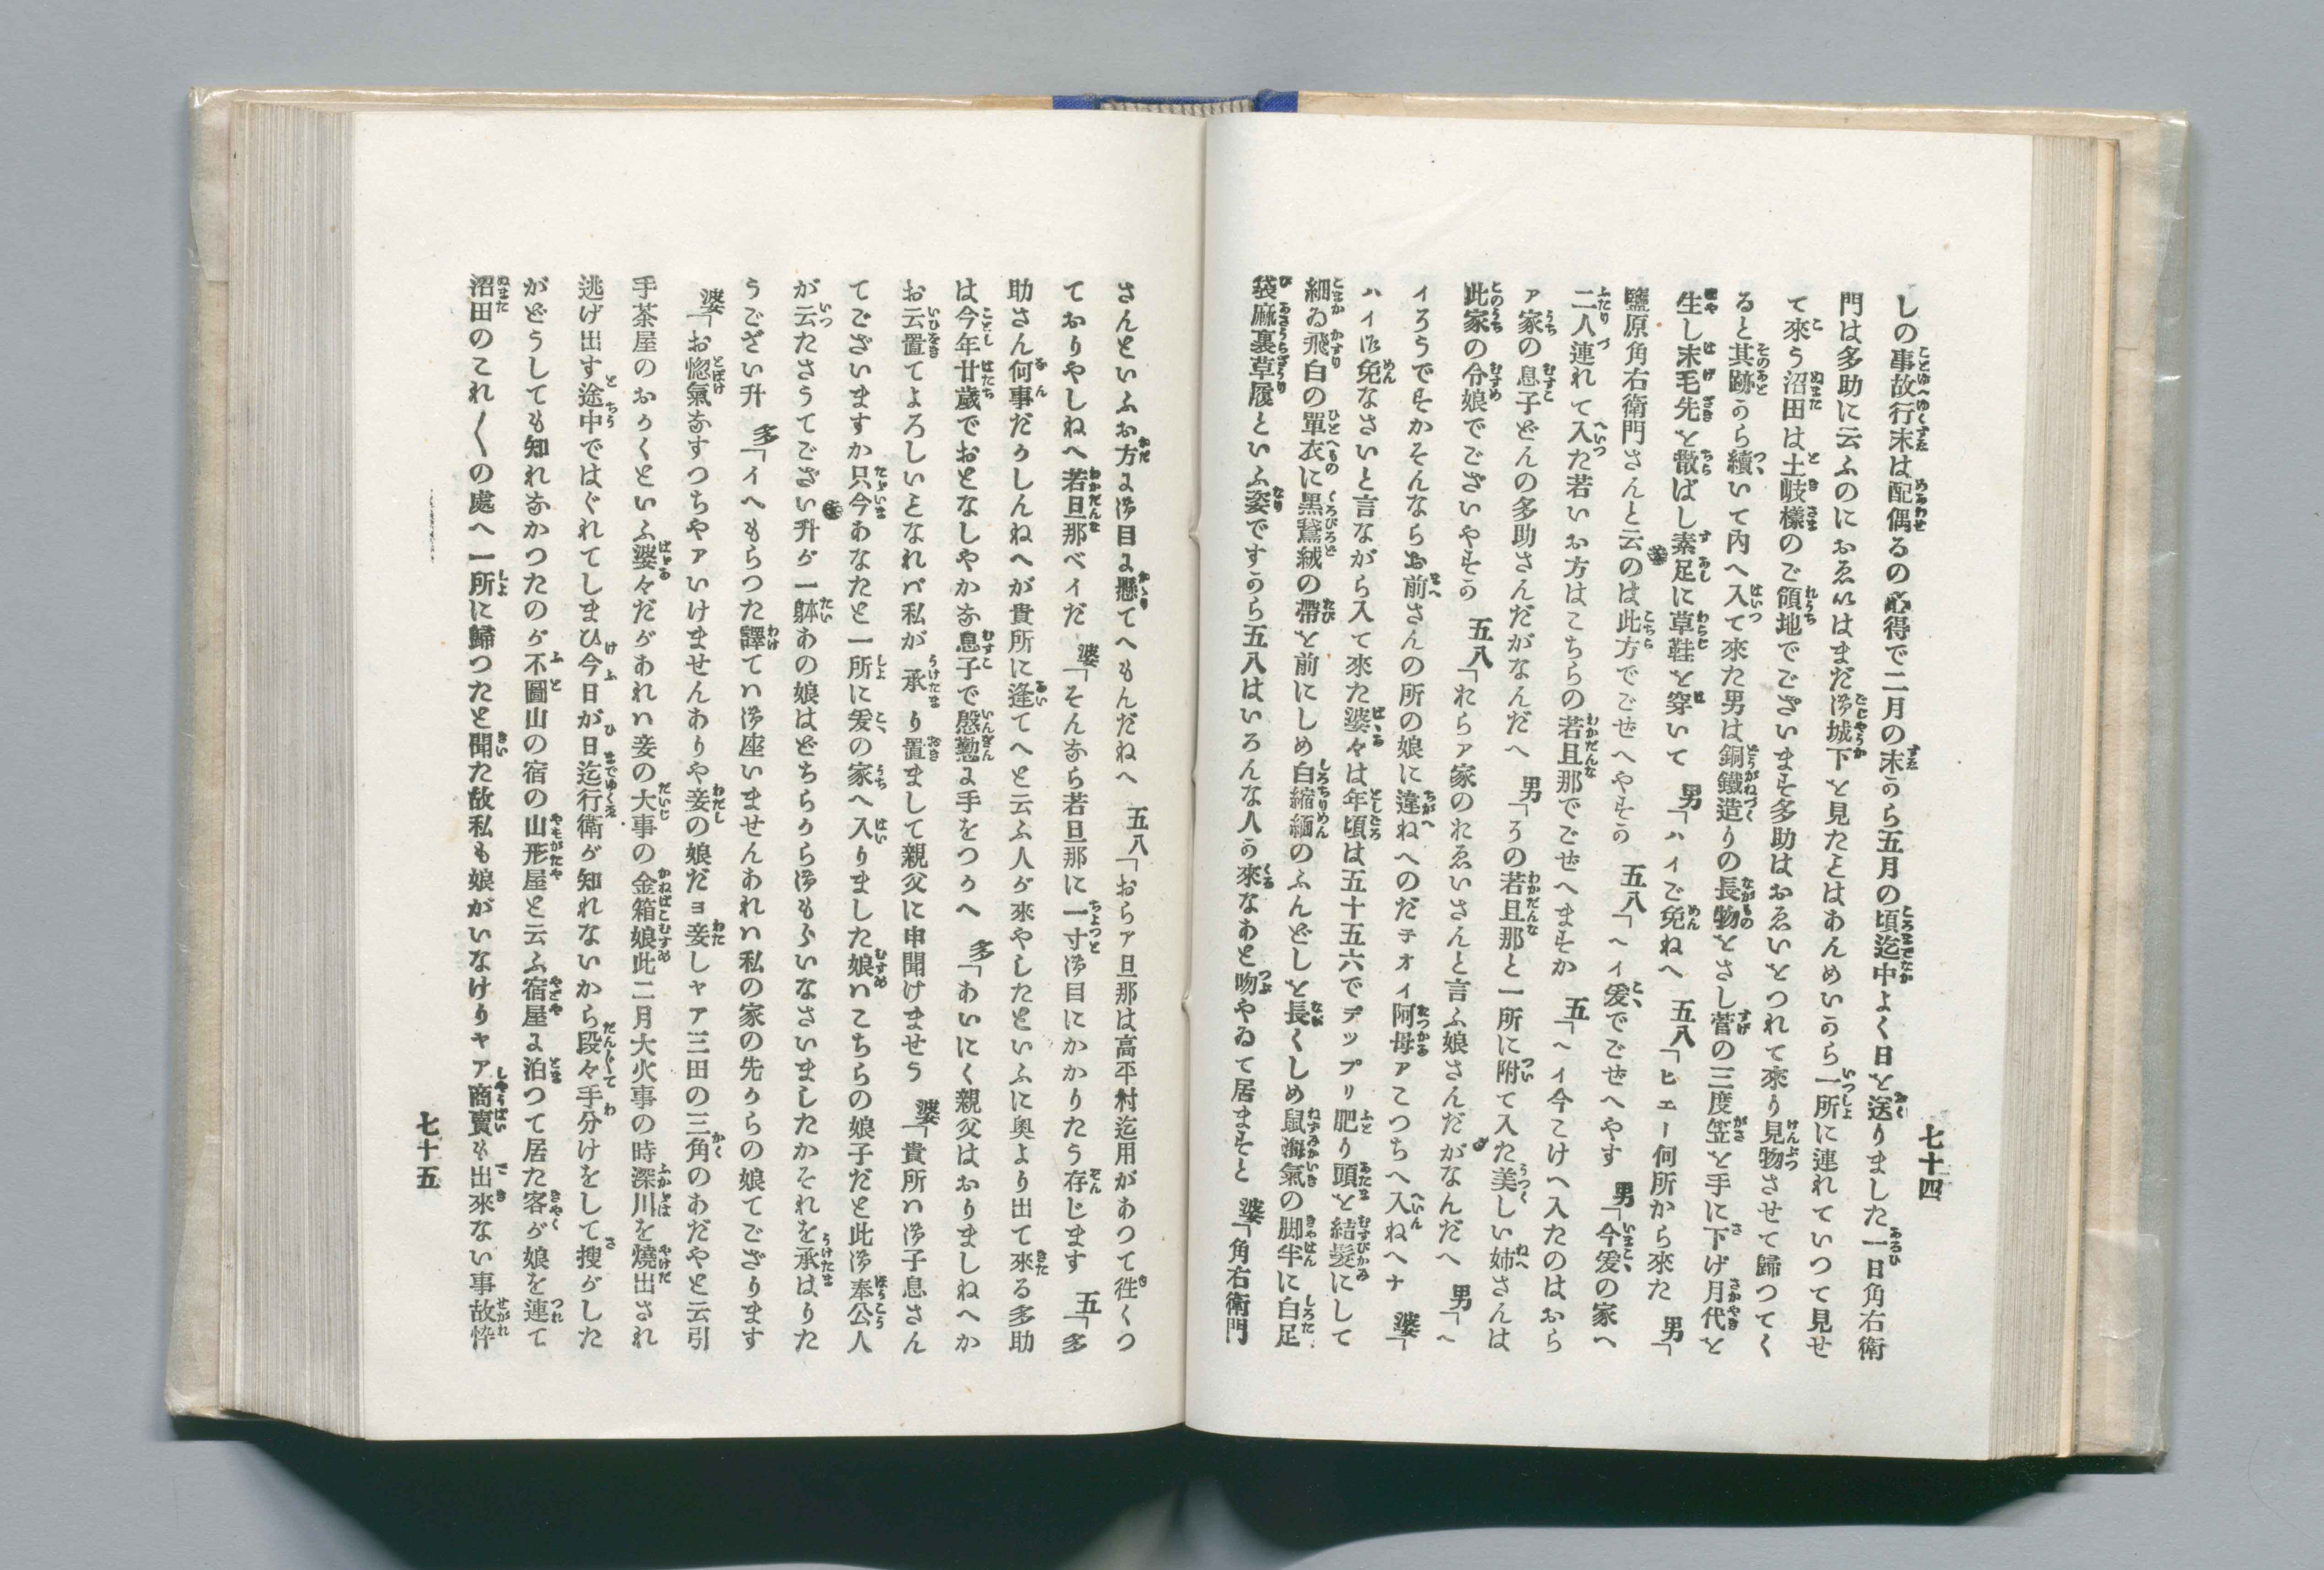 七十四
しの事故行末は配偶るの心得で二月の末から五月の頃迄中よく日を送りました一日角右衛
門は多助に云ふのにおゑいはまだ御城下を見たことはあんめいから一所に連れていつて見せ
て來う沼田は土岐樣のご領地でございます多助はおゑいをつれて來り見物させて歸つてく
ると其跡から續いて內へ入て來た男は銅鐵造りの長物をさし菅の三度笠を手に下げ月代を
生し末毛先を散ばし素足に草鞋を穿いて 男「ハイご免ねへ 五八「ヒエー何所から來た 男「
鹽原角右衛門さんと云のは此方でごせへやすか 五八「ヘイ爰でごせへやす 男「今爰の家へ
二人連れて入た若いお方はこちらの若旦那でごぜへますか 五「ヘイ今こけへ入たのはおら
ア家の息子どんの多助さんだがなんだへ 男「うの若旦那と一所に附て入た美しい姉さんは
此家の令娘でございやすか 五八「れらア家のれゑいさんと言ふ娘さんだがなんだへ 男「へ
イろうですかそんならお前さんの所の娘に違ねへのだヲオイ阿母アこつちへ入ねへナ 婆「
ハイ御免なさいと言ながら入て來た婆々は年頃は五十五六でデップリ肥り頭を結髮にして
細ゐ飛白の單衣に黑鵞絨の帶を前にしめ白縮緬のふんどしを長くしめ鼠海氣の脚半に白足
袋麻裏草履といふ姿ですから五八はいろんな人が來なあと吻やゐて居ますと 婆「角右衛門
さんといふお方に御目に懸てへもんだねへ 五八「おらア旦那は高平村迄用があつて徃くつ
ておりやしねへ若旦那ベイだ 婆「そんなら若旦那に一寸御目にかかりたう存じます 五「多
助さん何事だかしんねへが貴所に逢てへと云ふ人が來やしたといふに奧より出て來る多助
は今年廿歲でおとなしやかな息子で慇懃に手をつかへ 多「あいにく親父はおりましねへか
お云置てよろしいとなれバ私が承り置まして親父に申聞けませう 婆「貴所ハ御子息さん
てございますか只今あなたと一所に爰の家へ入りました娘ハこちらの娘子だと此御奉公人
が云たさうてござい升が一躰あの娘はどちらから御もらいなさいましたかそれを承はりた
うござい升 多「イヘもらつた譯てハ御座いませんあれハ私の家の先からの娘てござります
婆「お惚氣なすつちやアいけませんありや妾の娘だヨ妾しャア三田の三角のあだやと云引
手茶屋のおかくといふ婆々だがあれハ妾の大事の金箱娘此二月大火事の時深川を燒出され
逃げ出す途中ではぐれてしまひ今日が日迄行衛が知れないから段々手分けをして搜がした
がどうしても知れなかつたのが不圖山の宿の山形屋と云ふ宿屋に泊つて居た客が娘を連て
沼田のこれ〳〵の處へ一所に歸つたと聞た故私も娘がいなけりャア商賣も出來ない事故忰
七十五